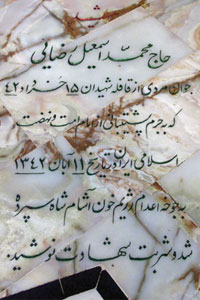 شد
حاج محمد اسمعیل رضائی
جوان مردی از قافله شهیدان ۱۵ خرداد ۴۲
که بجرم پشتیبانی از امام امت و نهضت
اسلامی ایران بتاریخ ۱۱ آبان ۱۳۴۲
به جوخه اعدام رژیم خون آشام شاه سپرده
شد و شربت شهادت نوشید.